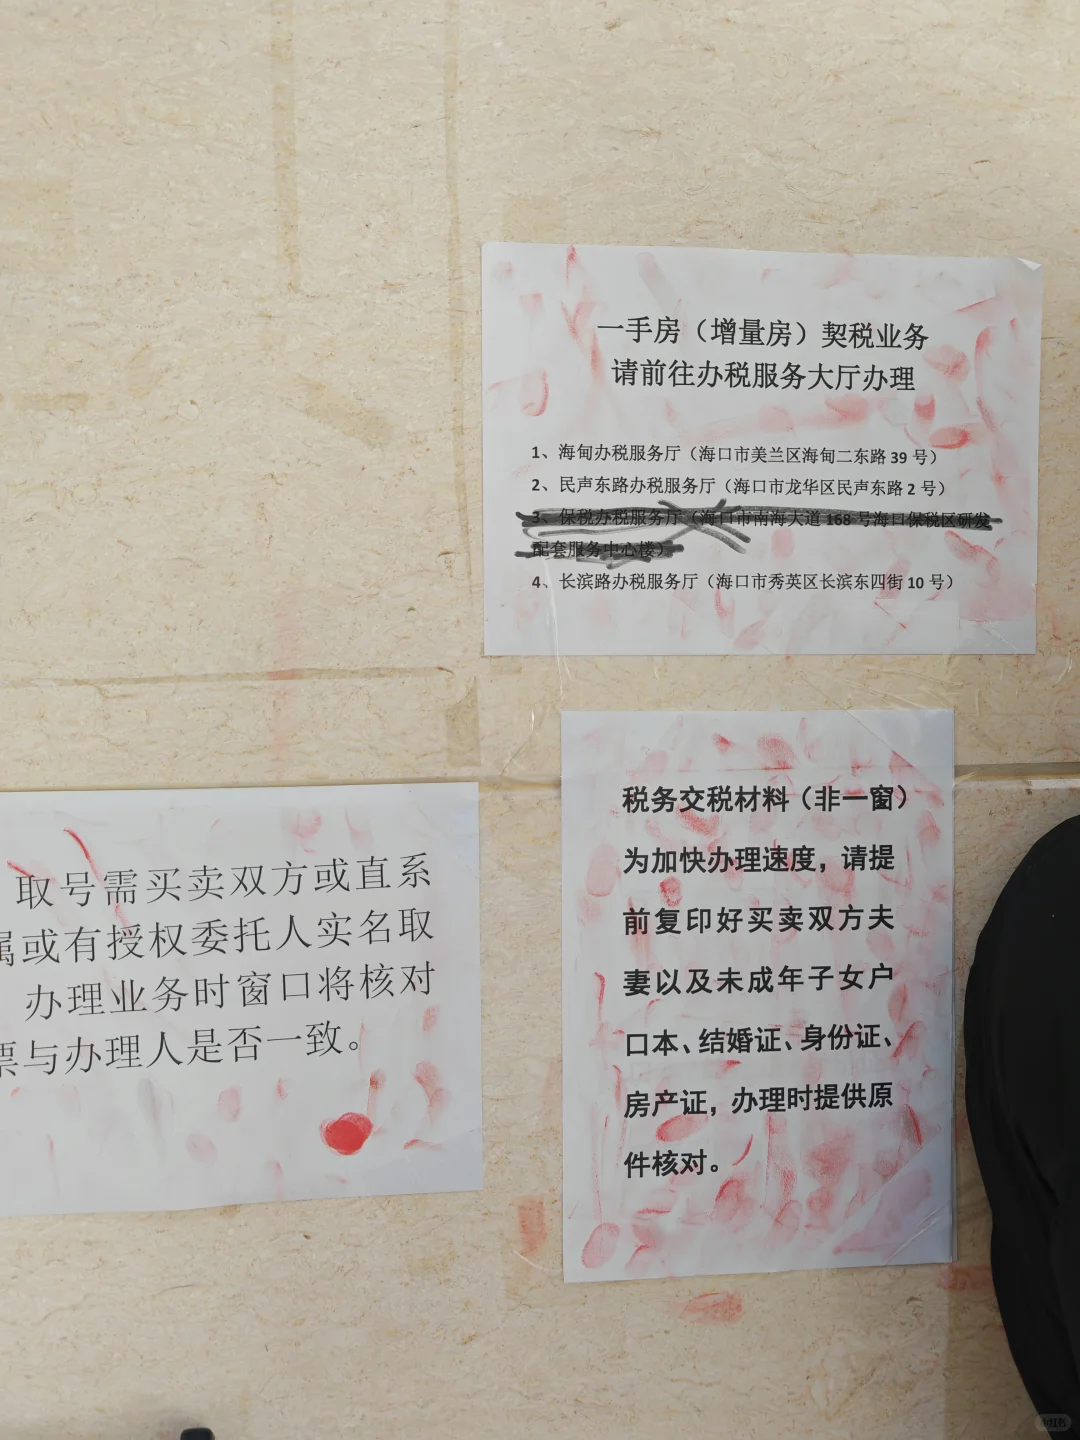 一手房（增量房）契税业务
请前往办税服务大厅办理
1、海甸办税服务厅（海口市美兰区海甸二东路 39 号）
2、民声东路办税服务厅（海口市龙华区民声东路 2 号）
3、保税办税服务厅（海口市南海大道 168 号海口保税区研发
配套服务中心楼）
4、长滨路办税服务厅（海口市秀英区长滨东四街 10 号）
取号需买卖双方或直系
属或有授权委托人实名取
办理业务时窗口将核对
票与办理人是否一致。
税务交税材料（非一窗）
为加快办理速度，请提
前复印好买卖双方夫
妻以及未成年子女户
口本、结婚证、身份证、
房产证，办理时提供原
件核对。
小红书